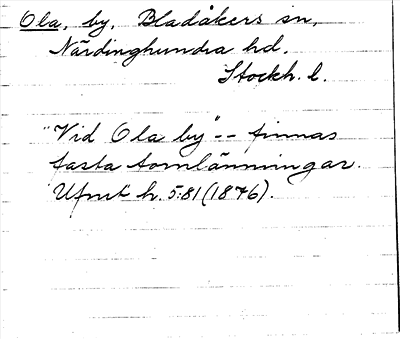 Ola, by, Bladåkers sn,
Närdinghundra hd.
Stockh. l.
"Vid Ola by" -- finnas
fasta fornlämningar.
Ufmt h. 5:81 (1876).